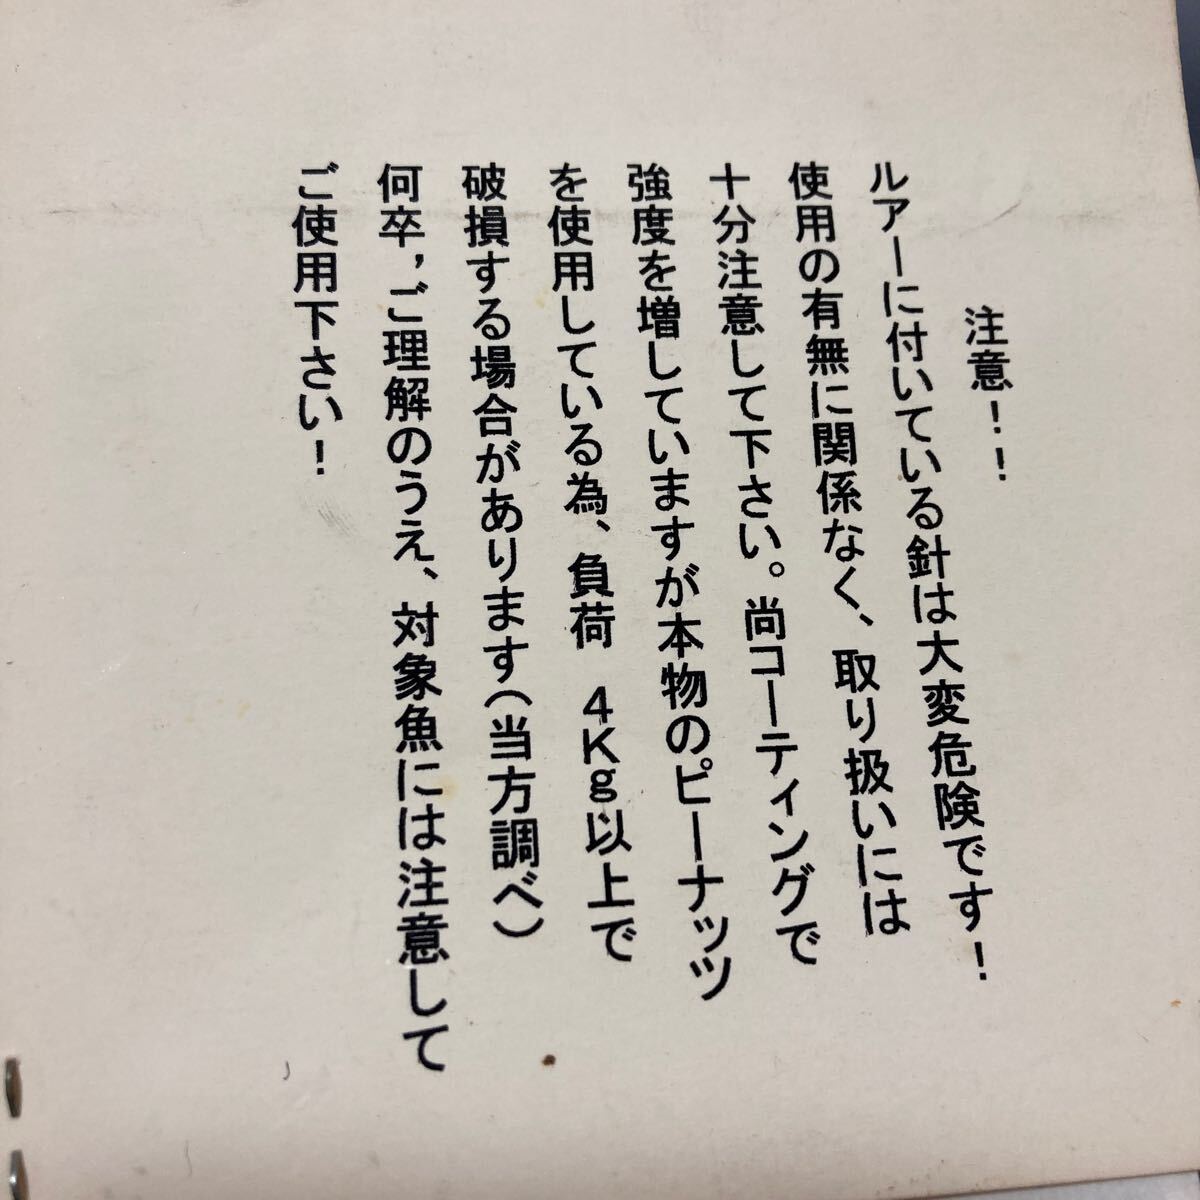 注意！！
ルアーに付いている針は大変危険です！
使用の有無に関係なく、取り扱いには
十分注意して下さい。尚コーティングで
強度を増していますが本物のピーナッツ
を使用している為、負荷　4Kg以上で
破損する場合があります（当方調べ）
何卒，ご理解のうえ、対象魚には注意して
ご使用下さい！